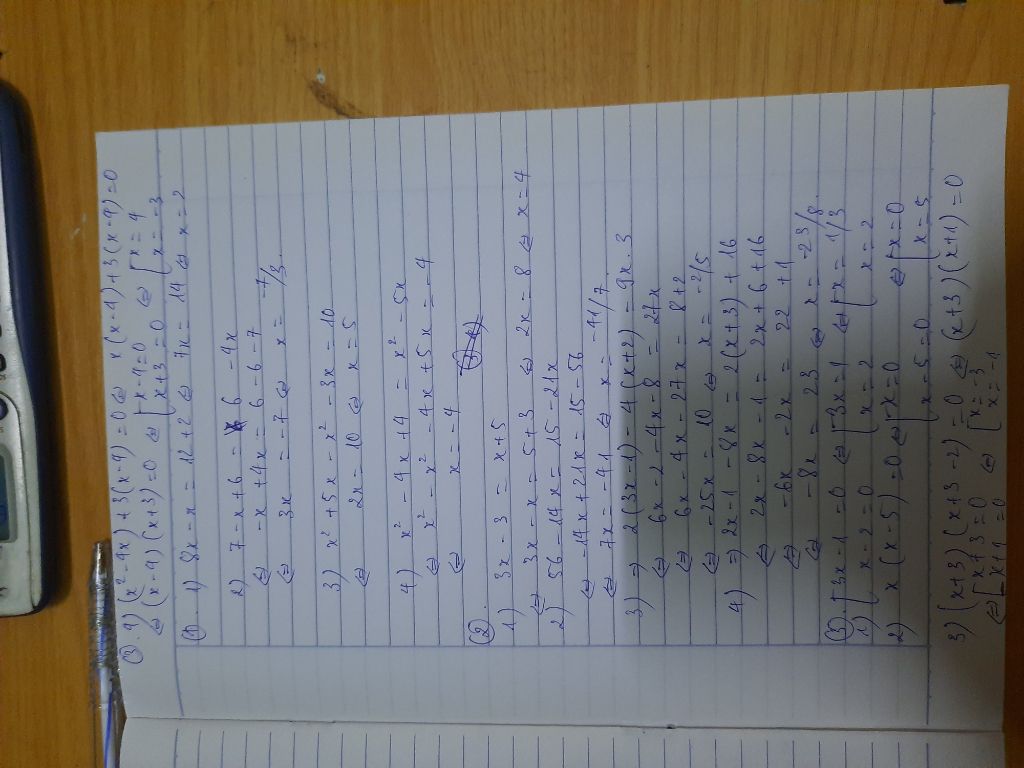 (3). 4) (x² - 4x) + 3(x - 4) = 0 ⇔ x(x - 4) + 3(x - 4) = 0
⇔ (x - 4)(x + 3) = 0 ⇔ [ x - 4 = 0 ⇔ [ x = 4
x + 3 = 0 x = -3
(1). 1) 8x - x = 12 + 2 ⇔ 7x = 14 ⇔ x = 2
2) 7 - x + 6 = 6 - 4x
⇔ -x + 4x = 6 - 6 - 7
⇔ 3x = -7 ⇔ x = -7/3.
3) x² + 5x - x² - 3x = 10
⇔ 2x = 10 ⇔ x = 5
4) x² - 4x + 4 = x² - 5x
⇔ x² - x² - 4x + 5x = -4
⇔ x = -4
(2).
1) 3x - 3 = x + 5
⇔ 3x - x = 5 + 3 ⇔ 2x = 8 ⇔ x = 4
2) 56 - 14x = 15 - 21x
⇔ -14x + 21x = 15 - 56
⇔ 7x = -41 ⇔ x = -41/7
3) ⇒ 2(3x - 1) - 4(x + 2) = 9x . 3
⇔ 6x - 2 - 4x - 8 = 27x
⇔ 6x - 4x - 27x = 8 + 2
⇔ -25x = 10 ⇔ x = -2/5
4) ⇒ 2x - 1 - 8x = 2(x + 3) + 16
⇔ 2x - 8x - 1 = 2x + 6 + 16
⇔ -6x - 2x = 22 + 1
⇔ -8x = 23 ⇔ x = -23/8.
(3). [ 3x - 1 = 0 ⇔ [ 3x = 1 ⇔ [ x = 1/3
1) x - 2 = 0 x = 2 x = 2
2) x(x - 5) = 0 ⇔ [ x = 0 ⇔ [ x = 0
x - 5 = 0 x = 5
3) (x + 3)(x + 3 - 2) = 0 ⇔ (x + 3)(x + 1) = 0
⇔ [ x + 3 = 0 ⇔ [ x = -3
x + 1 = 0 x = -1